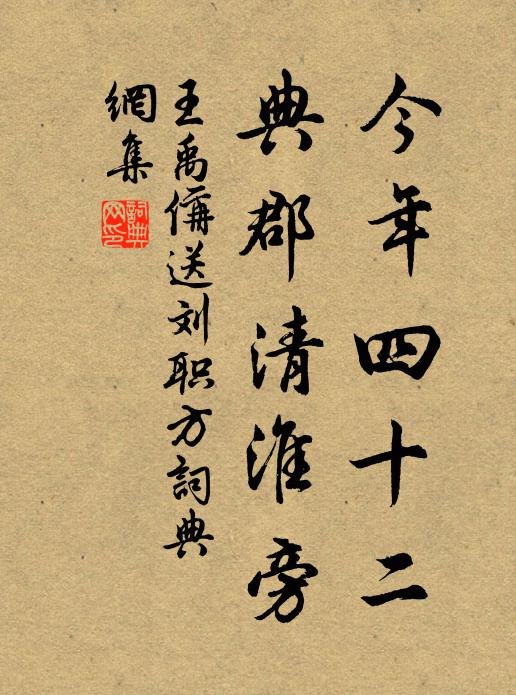 今年四十二
典郡清淮旁
王禹偁送刘职方詞典
網集
詞典
网印